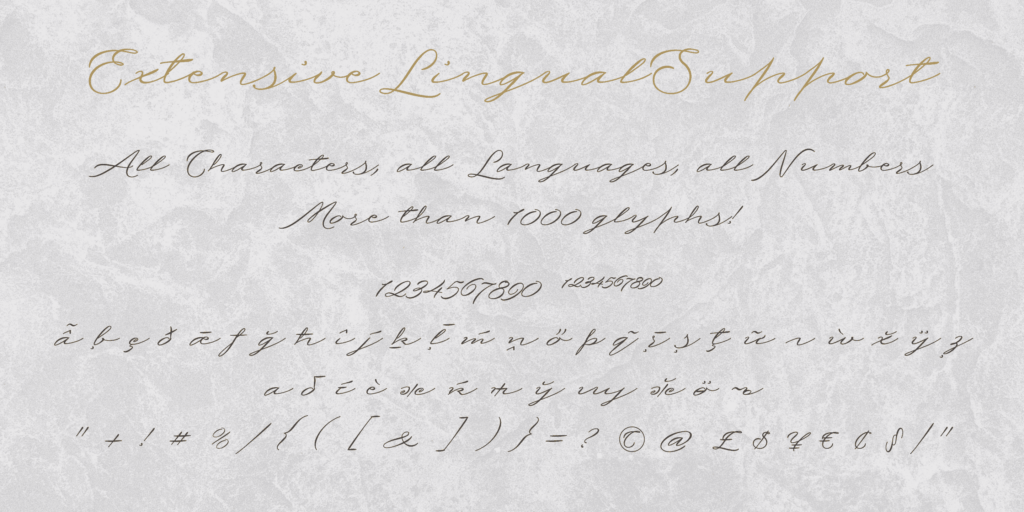 Extensive Lingual Support
All Characters, all Languages, all Numbers
More than 1000 glyphs!
1234567890 1234567890
ḅ ð f ħ ḵ ḿ ṇ þ ẁ ž ÿ
a è ќ ў ӧ
" + ! # % / { ( [ & ] ) } = ? © @ £ $ ¥ € ¢ / "